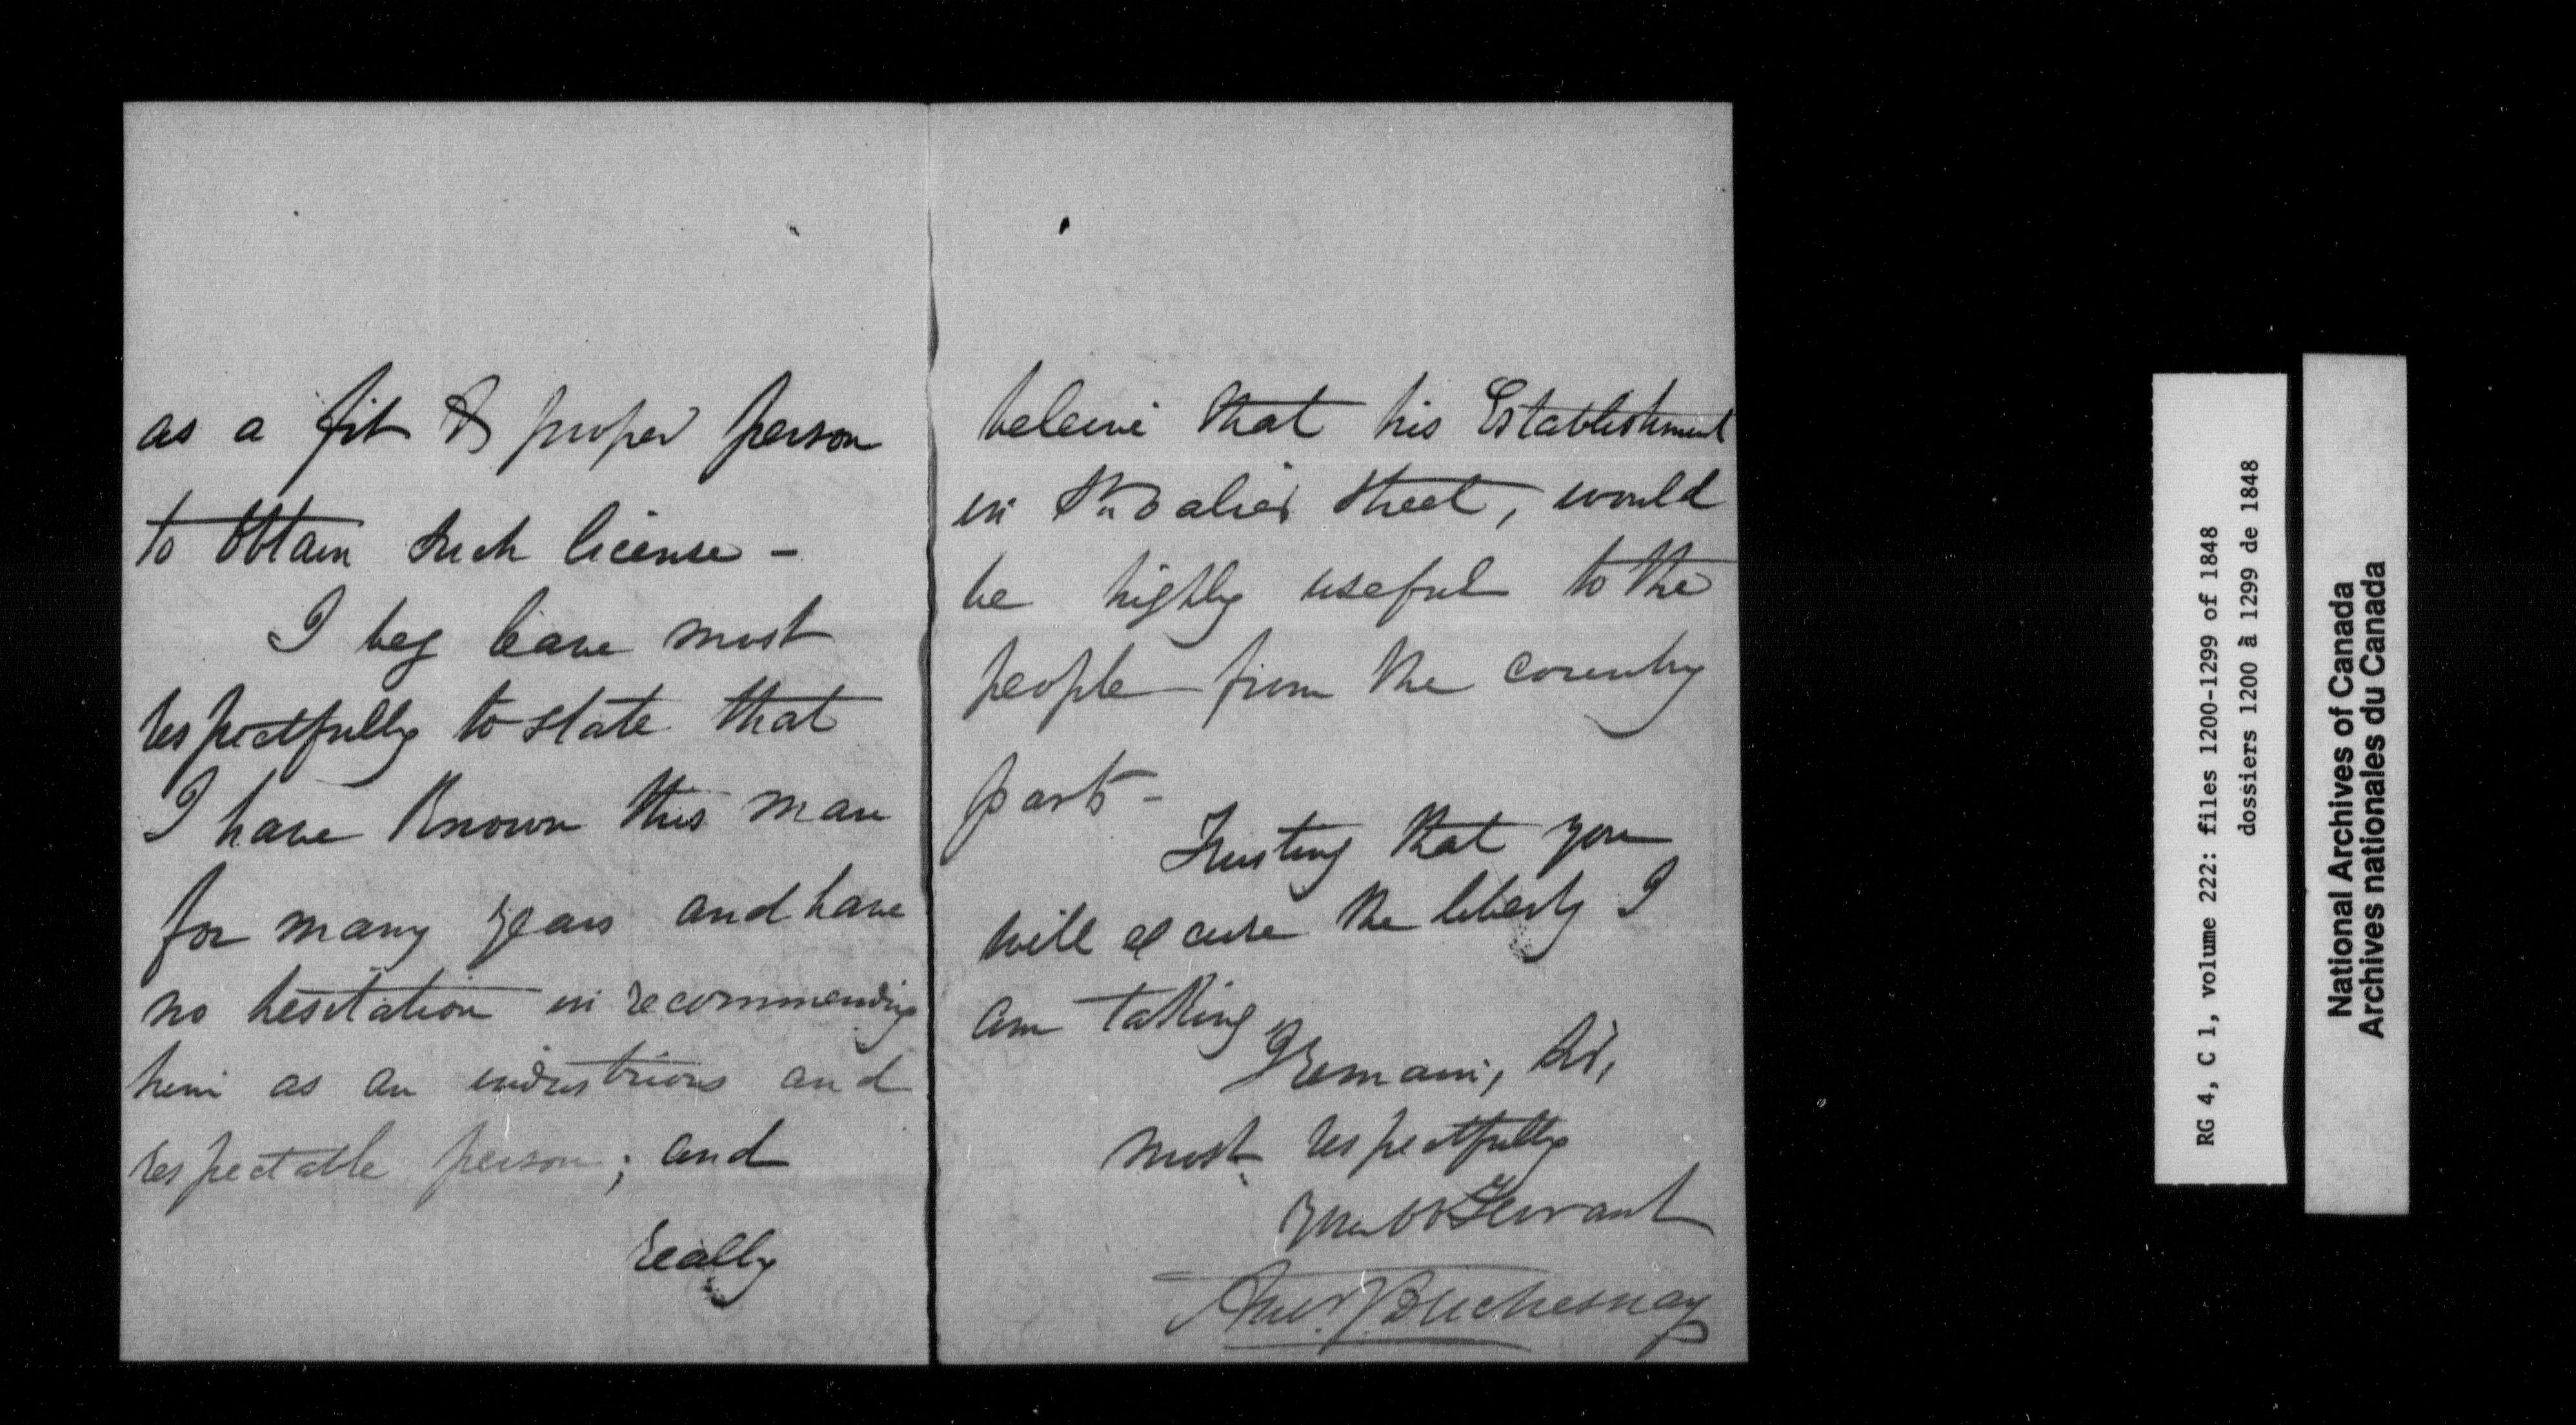 as a fit & proper person
to obtain such license -
I beg leave most
respectfully to state that
I have known this man
for many years and have
no hesitation in recommending
him as an industrious and
respectable person; and
really
beleive that his Establishment
in St Valier Street, would
be highly useful to the
people from the country
parts -
Trusting that you
will excuse the liberty I
am taking,
I remain, Sir,
most respectfully
Your Ob Servant
Duchesnay
RG 4, C 1, volume 222: files 1200-1299 of 1848
dossiers 1200 à 1299 de 1848
National Archives of Canada
Archives nationales du Canada